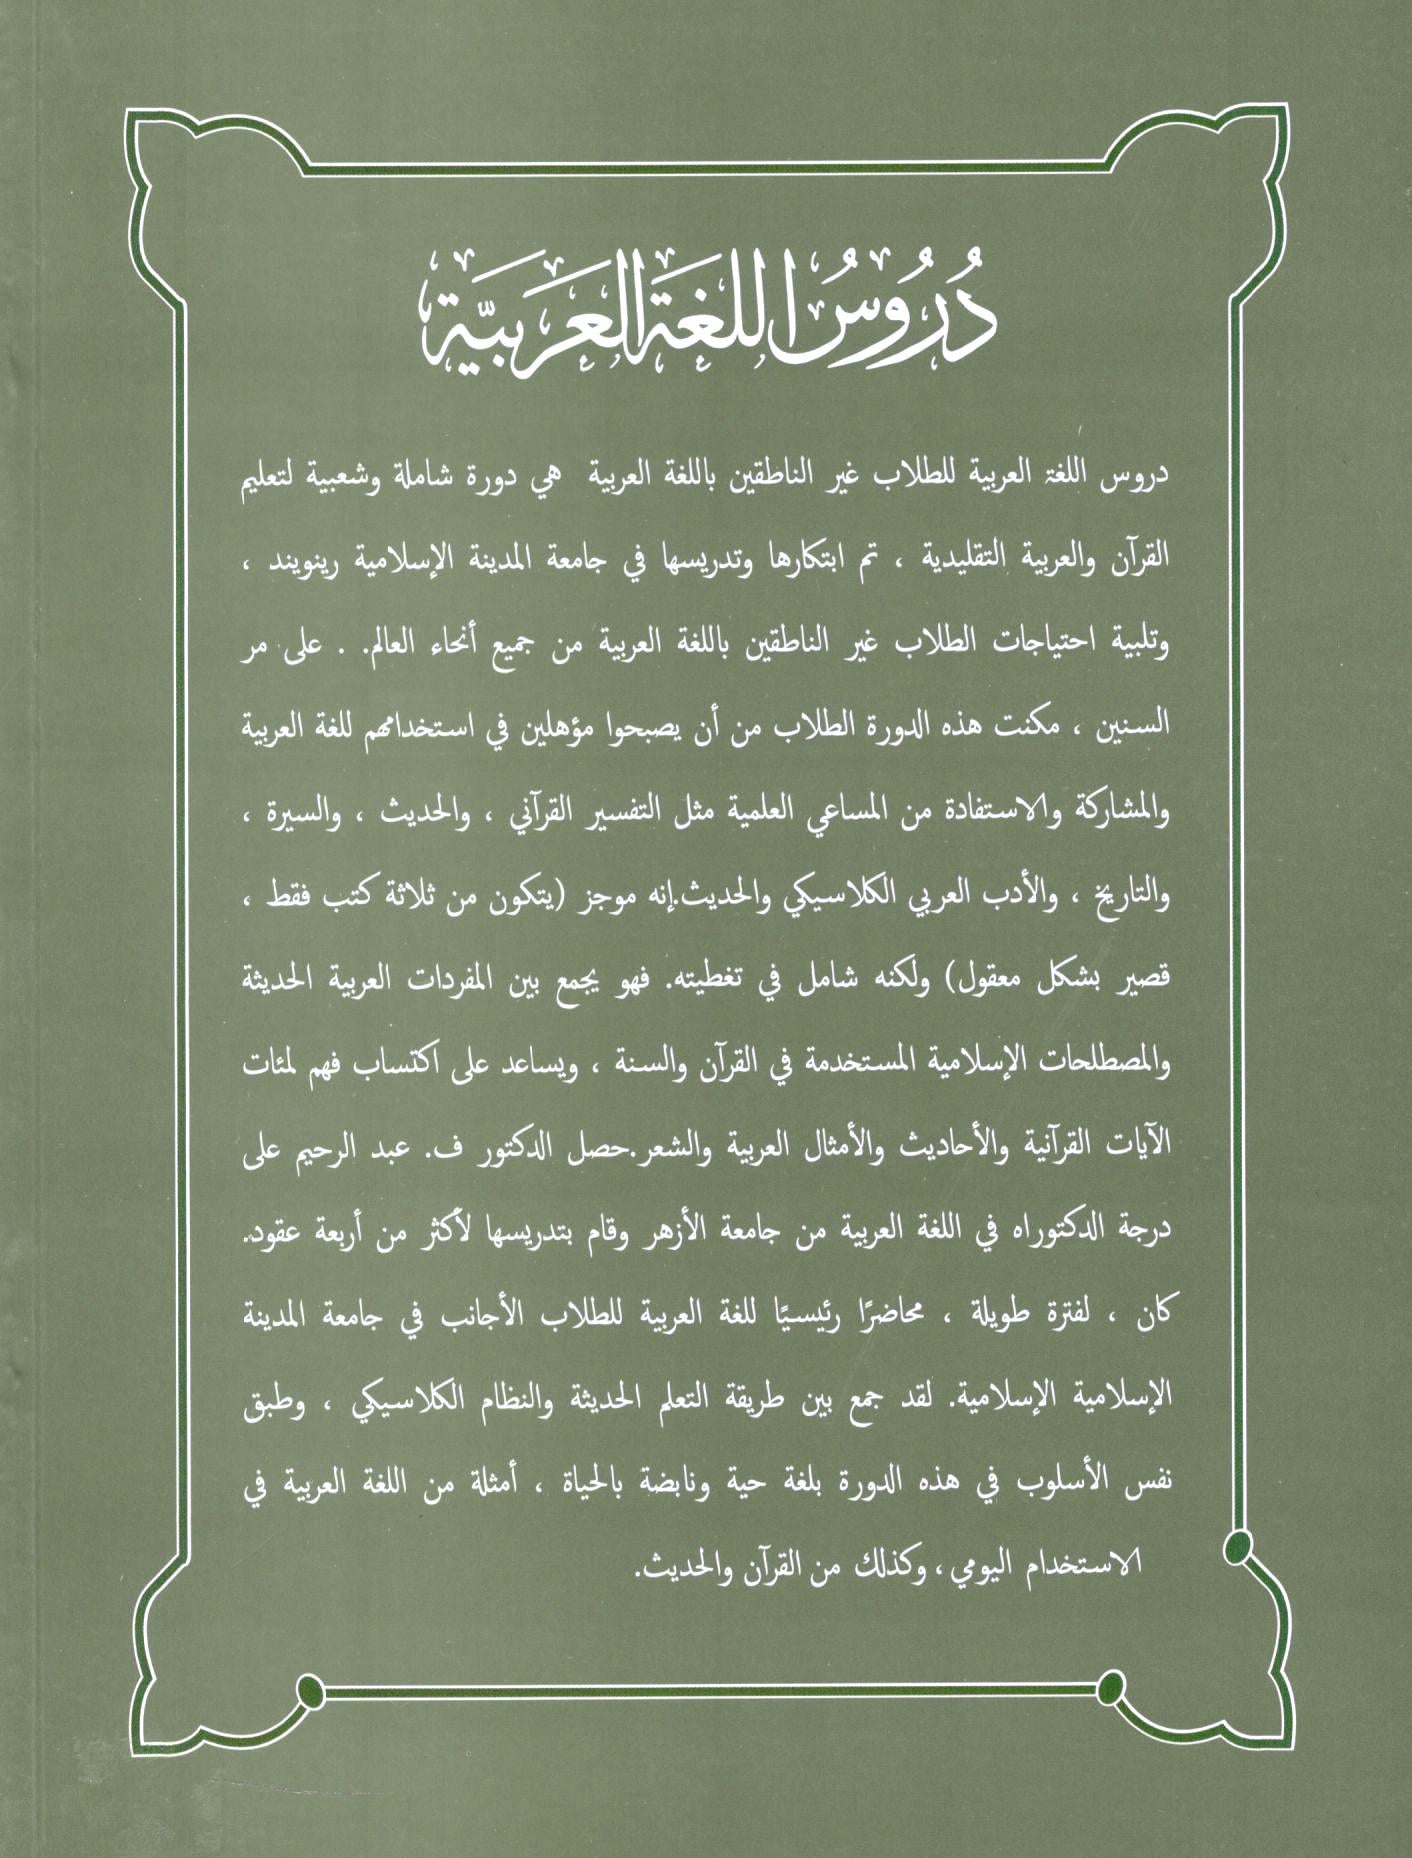 دُرُوسُ اللُّغَةِ العَرَبِيَّةِ
دروس اللغة العربية للطلاب غير الناطقين باللغة العربية هي دورة شاملة وشعبية لتعليم
القرآن والعربية التقليدية ، تم ابتكارها وتدريسها في جامعة المدينة الإسلامية رينويند ،
وتلبية احتياجات الطلاب غير الناطقين باللغة العربية من جميع أنحاء العالم. . على مر
السنين ، مكنت هذه الدورة الطلاب من أن يصبحوا مؤهلين في استخدامهم للغة العربية
والمشاركة والاستفادة من المساعي العلمية مثل التفسير القرآني ، والحديث ، والسيرة ،
والتاريخ ، والأدب العربي الكلاسيكي والحديث.إنه موجز (يتكون من ثلاثة كتب فقط ،
قصير بشكل معقول) ولكنه شامل في تغطيته. فهو يجمع بين المفردات العربية الحديثة
والمصطلحات الإسلامية المستخدمة في القرآن والسنة ، ويساعد على اكتساب فهم لمئات
الآيات القرآنية والأحاديث والأمثال العربية والشعر.حصل الدكتور ف. عبد الرحيم على
درجة الدكتوراه في اللغة العربية من جامعة الأزهر وقام بتدريسها لأكثر من أربعة عقود.
كان ، لفترة طويلة ، محاضرًا رئيسيًا للغة العربية للطلاب الأجانب في جامعة المدينة
الإسلامية الإسلامية. لقد جمع بين طريقة التعلم الحديثة والنظام الكلاسيكي ، وطبق
نفس الأسلوب في هذه الدورة بلغة حية ونابضة بالحياة ، أمثلة من اللغة العربية في
الاستخدام اليومي ، وكذلك من القرآن والحديث.